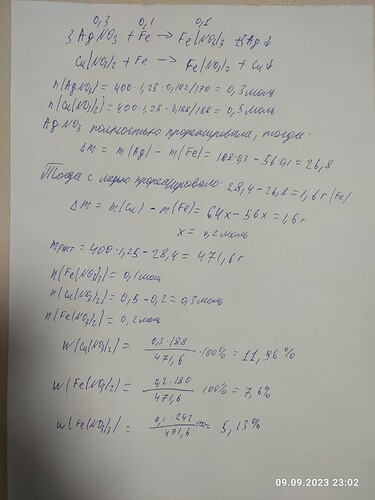 0,3 0,1 0,1
3AgNO3 + Fe → Fe(NO3)3 + 3Ag↓
Cu(NO3)2 + Fe → Fe(NO3)2 + Cu↓
n(AgNO3) = 400·1,25·0,102/170 = 0,3 моль
n(Cu(NO3)2) = 400·1,25·0,188/188 = 0,5 моль
AgNO3 полностью прореагировала, тогда:
Δm = m(Ag) - m(Fe) = 108·0,3 - 56·0,1 = 26,8
Тогда с медью прореагировало: 28,4 - 26,8 = 1,6 г (Fe)
Δm = m(Cu) - m(Fe) = 64x - 56x = 1,6 г
x = 0,2 моль
mраст = 400·1,25 - 28,4 = 471,6 г
n(Fe(NO3)3) = 0,1 моль
n(Cu(NO3)2) = 0,5 - 0,2 = 0,3 моль
n(Fe(NO3)2) = 0,2 моль
w(Cu(NO3)2) = 0,3·188/471,6 ·100% = 11,96%
w(Fe(NO3)2) = 0,2·180/471,6 100% = 7,6%
w(Fe(NO3)3) = 0,1·242/471,6 100 = 5,13%
09.09.2023 23:02